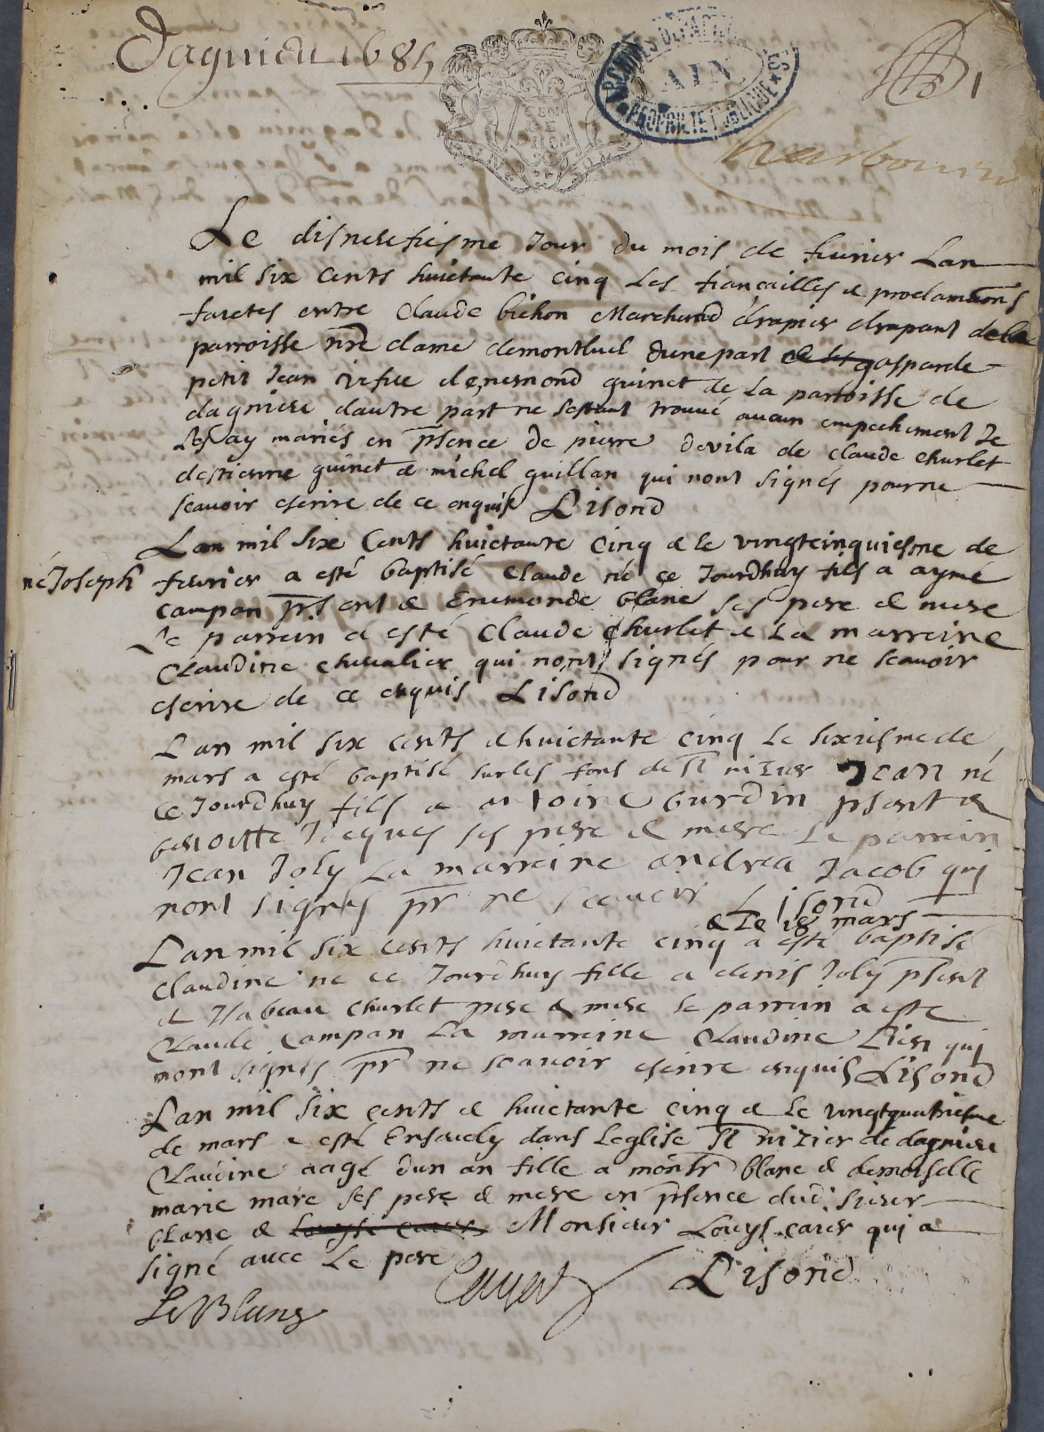 Dagnieu 1685
ARCHIVES DEPARTEMENTALES
AIN
PROPRIETE PUBLIQUE
1
Le disneufiesme Jour du mois de feurier Lan
mil six cents huictante cinq les fiançailles & proclamations
faictes entre Claude bichon Marchand drapier drapant de la
parroisse nre dame demontluel dunepart gasparde
petit Jean vefue de ennemond guinet de la parroisse de
dagnieu dautre part ne sestant trouué aucun empechement Je
les ay mariés en psence de pierre devila de Claude Churlet
destienne guinet & michel guillan qui nont signés pour ne
scauoir escrire de ce enquis Lisond
Lan mil six Cents huictante Cinq & le vingtcinquiesme de
né Joseph feurier a esté baptisé Claude né ce Jourdhuy fils a aymé
campan psent & Enemonde blanc ses pere & mere
Le parrein a esté Claude Churlet & La marreine
Claudine cheualier qui nont signés pour ne scauoir
escrire de ce enquis Lisond
Lan mil six cents & huictante cinq le sixiesme de
mars a esté baptisé sur les fons de St nizier Jean né
ce Jourdhuy fils a antoine burdin psent &
benoitte Jacques ses pere & mere Le parrein
Jean Joly La marreine andrea Jacob qui
nont signés pr ne scauoir Lisond
& le 18 mars
Lan mil six cents huictante cinq a esté baptisé
Claudine née ce Jourdhuy fille a denis Joly psent
& Isabeau Churlet pere & mere le parrein a este
Claude Campan La marreine Claudine qui
nont signés pr ne scauoir escrire enquis Lisond
Lan mil six cents & huictante cinq & le vingtquatriesme
de mars a esté Enseuely dans Leglise St nizier de dagnieu
Claudine aagé dun an fille a monsr blanc & demoiselle
marie mare ses pere & mere en psence dud. sieur
blanc & Monsieur Louys qui a
signé auec Le pere
Lisond
Le Blanc